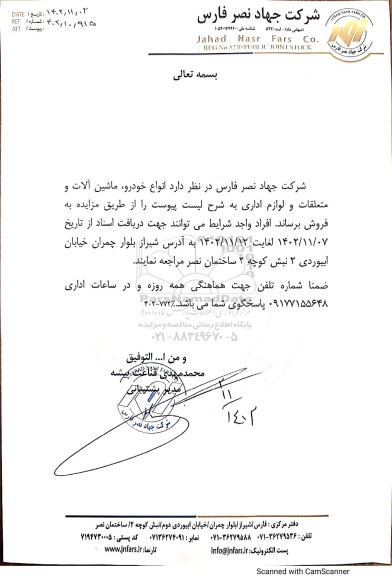 شرکت جهاد نصر فارس
Jahad Nasr Fars Co.
REG No 5270 PUBLIC JOINT STOCK
DATE تاریخ: ۱۴۰۲/۱۱/۰۳
REF شماره:
ATT پیوست:
بسمه تعالی
شرکت جهاد نصر فارس در نظر دارد انواع خودرو، ماشین آلات و
متعلقات و لوازم اداری به شرح لیست پیوست را از طریق مزایده به
فروش برساند. افراد واجد شرایط می توانند جهت دریافت اسناد از تاریخ
۱۴۰۲/۱۱/۰۷ لغایت ۱۴۰۲/۱۱/۱۲ به آدرس شیراز بلوار چمران خیابان
ابیوردی ۲ نبش کوچه ۲ ساختمان نصر مراجعه نمایند.
ضمنا شماره تلفن جهت هماهنگی همه روزه و در ساعات اداری
۰۹۱۷۷۱۵۵۶۴۸ پاسخگوی شما می باشد.
پایگاه اطلاع رسانی مناقصه و مزایده
۰۲۱-۸۸۳۴۹۶۷۰-۵
و من ا... التوفیق
محمدمهدی قناعت پیشه
مدیر پشتیبانی
۱۴۰۲/۱۱/۲
دفتر مرکزی: فارس/شیراز/بلوار چمران/خیابان ابیوردی دوم/نبش کوچه ۲/ساختمان نصر
تلفن: ۳۶۲۷۹۵۳۶-۰۷۱ ۳۶۲۷۹۵۸۸-۰۷۱ نمابر: ۰۷۱۳۶۲۷۴۰۹۱ کد پستی: ۷۱۹۴۷۳۰۰۰۵
پست الکترونیک: Info@jnfars.ir تارنما: www.jnfars.ir
Scanned with CamScanner